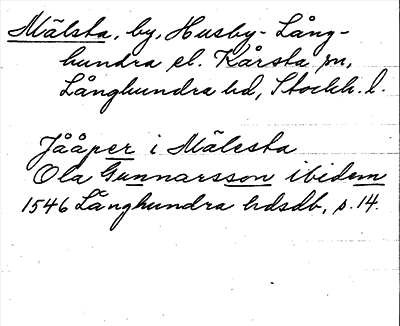 Mälsta, by, Husby-Lång-
hundra el. Kårsta sn,
Långhundra hd, Stockh. l.
Jååper i Mälesta
Ola Gunnarsson ibidem
1546 Långhundra hdsdb, s. 14.